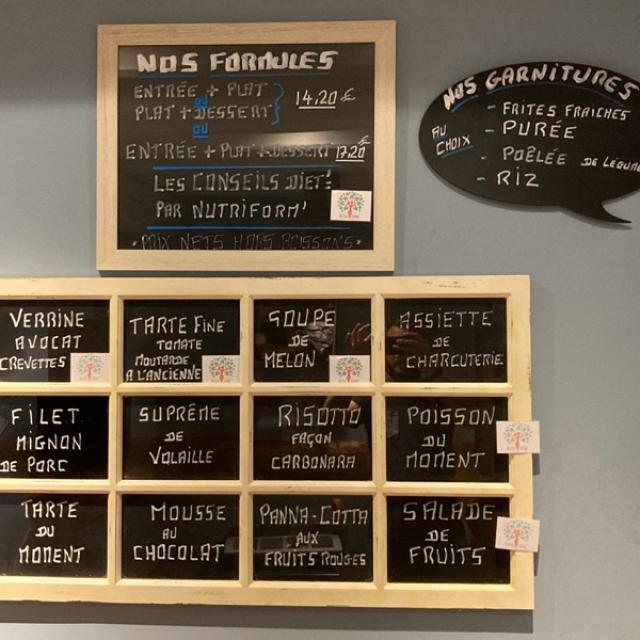 NOS FORMULES
ENTRÉE + PLAT
OU
PLAT + DESSERT
14,20 €
OU
ENTRÉE + PLAT + DESSERT 17,20 €
LES CONSEILS DIET'
PAR NUTRIFORM'
*PRIX NETS HORS BOISSONS*
NOS GARNITURES
AU CHOIX
- FRITES FRAICHES
- PURÉE
- POÊLÉE DE LÉGUME
- RIZ
VERRINE
AVOCAT
CREVETTES
TARTE FINE
TOMATE
MOUTARDE
A L'ANCIENNE
SOUPE
DE
MELON
ASSIETTE
DE
CHARCUTERIE
FILET
MIGNON
DE PORC
SUPRÊME
DE
VOLAILLE
RISOTTO
FAÇON
CARBONARA
POISSON
DU
MOMENT
TARTE
DU
MOMENT
MOUSSE
AU
CHOCOLAT
PANNA-COTTA
AUX
FRUITS ROUGES
SALADE
DE
FRUITS